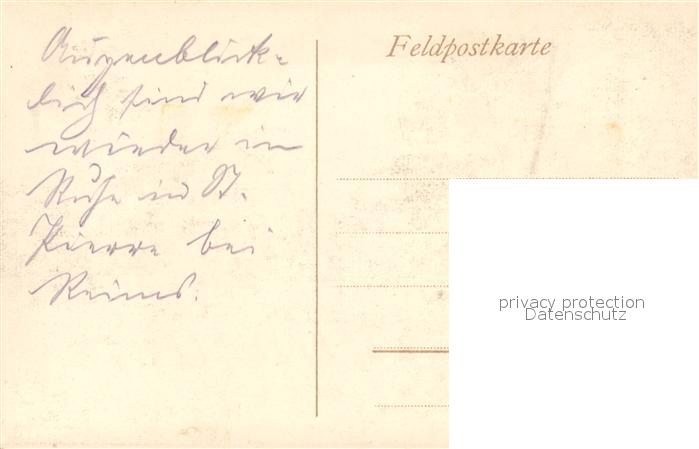 Augenblick-
lich sind wir
wieder in
Ruhe in St.
Pierre bei
Reims.
Feldpostkarte
privacy protection
Datenschutz